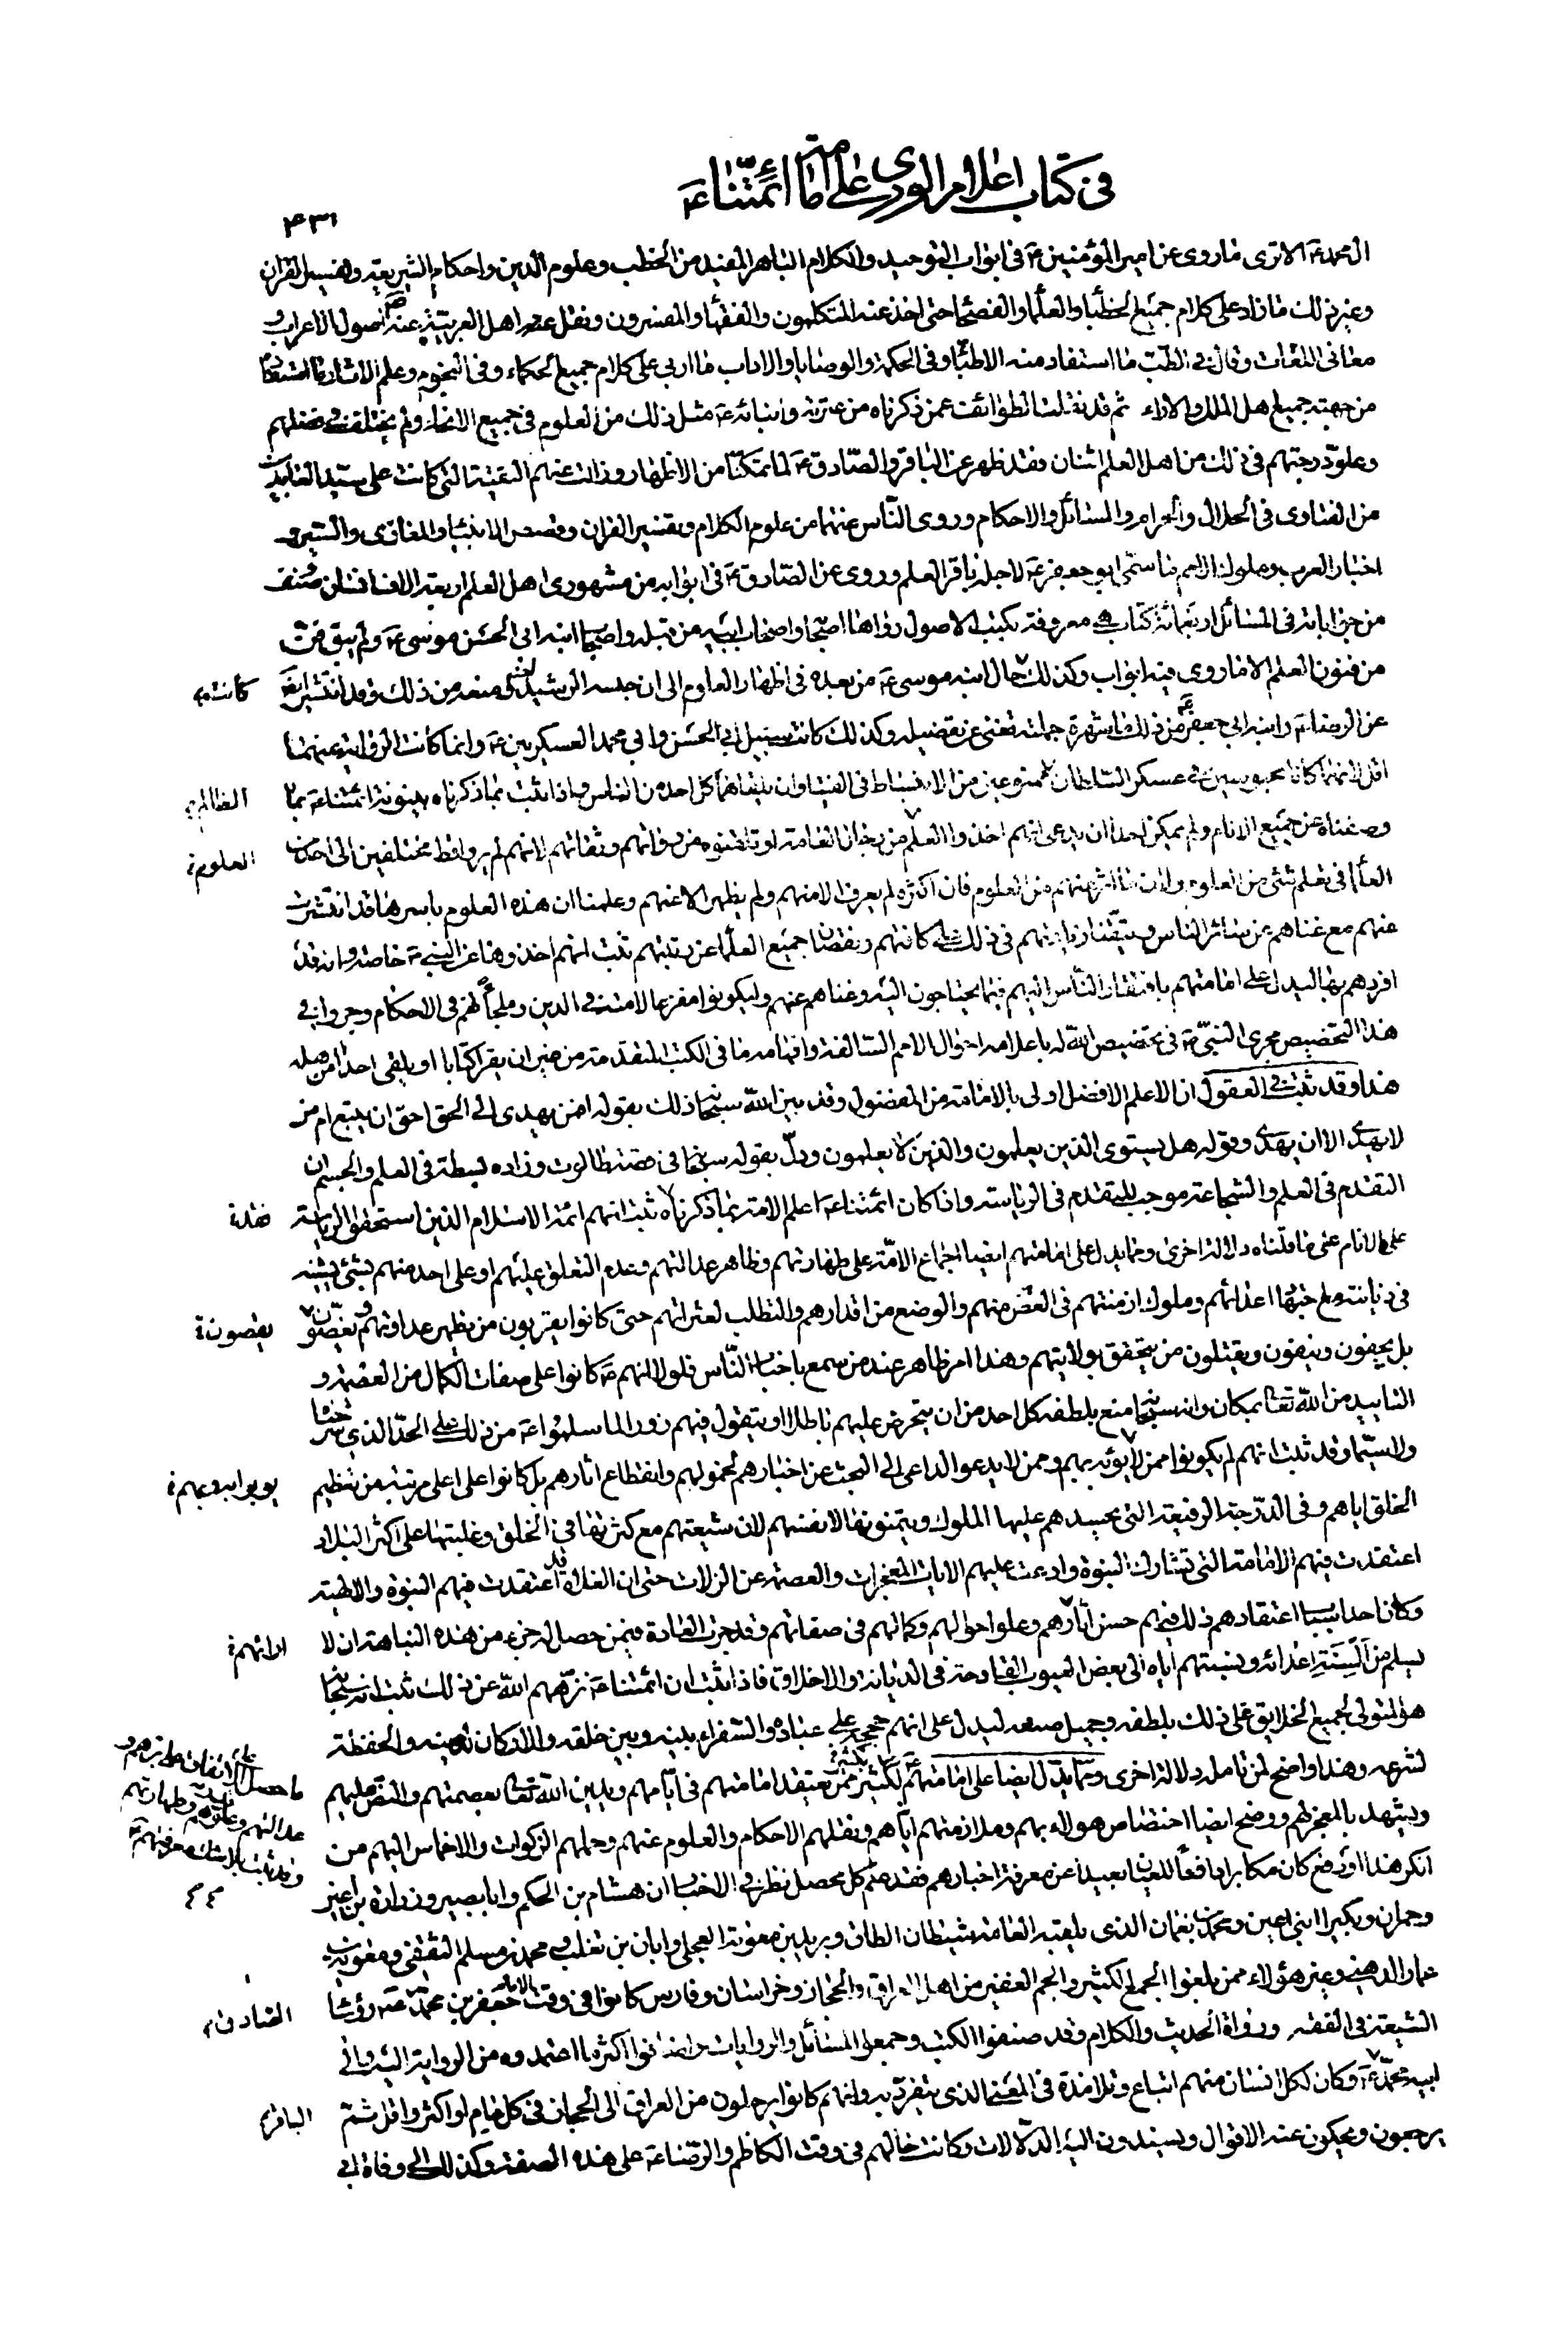 في كتاب اعلام الورى على امامة ائمتنا ع
٤٣١
ال محمد ع الا ترى ما روى عن امير المؤمنين ع في ابواب التوحيد والكلام الباهر المفيد من الخطب وعلوم الدين واحكام الشريعة وتفسير القران
وغير ذلك ما زاد على كلام جميع الخطباء والعلماء والفصحاء حتى اخذ عنه المتكلمون والفقهاء والمفسرون ونقل اهل العربية عنه اصول الاعراب و
معاني اللغات وقال في الطب ما استفاد منه الاطباء وفي الحكمة والوصايا والاداب ما اربى على كلام جميع الحكماء وفي النجوم وعلم الاثار ما استفاده
من جهته جميع اهل الملل والاراء ثم قد نقلت الطوائف عمن ذكرناه من عترته وابنائه ع مثل ذلك من العلوم في جميع الانحاء ولم يختلف في فضلهم
وعلو درجتهم في ذلك من اهل العلم اثنان فقد ظهر عن الباقر والصادق ع لما تمكنا من الاظهار وزالت عنهم التقية التي كانت على سيد العابدين
من الفتاوى في الحلال والحرام والمسائل والاحكام وروى الناس عنهما من علوم الكلام وتفسير القران وقصص الانبياء والمغازي والسير و
اخبار العرب وملوك الامم ما سمى ابو جعفر ع لاجله باقر العلم وروى عن الصادق ع في ابوابه من مشهوري اهل العلم اربعة الاف انسان وصنف
من جواباته في المسائل اربعمائة كتاب هي معروفة بكتب الاصول رواها اصحابه واصحاب ابيه من قبله واصحاب ابنه ابي الحسن موسى ع ولم يبق فن
من فنون العلم الا ما روى فيه ابواب وكذلك حال ابنه موسى ع من بعده في اظهار العلوم الى ان حبسه الرشيد ومنعه من ذلك وقد انتشر ايضا
كانت
عن الرضا ع وابنه ابي جعفر ع من ذلك ما شهرة جملته تغني عن تفصيله وكذلك كانت سبيل ابي الحسن وابي محمد العسكريين ع وانما كانت الرواية عنهما
اقل لانهما كانا محبوسين في عسكر السلطان ممنوعين من الانبساط في الفتيا وان يلقاهما كل احد من الناس واذا ثبت بما ذكرناه بينونة ائمتنا ع بما
الظالم
وصفناه عن جميع الانام ولم يمكن احدا ان يدعى انهم اخذوا العلم من رجال العامة او تلقنوه من رواتهم وثقاتهم لانهم لم يروا قط مختلفين الى احد من
العلوم
العلماء في تعلم شئ من العلوم ولان ما اثر عنهم من العلوم فان اكثره لم يعرف الا منهم ولم يظهر الا عنهم وعلمنا ان هذه العلوم باسرها قد انتشرت
عنهم مع غناهم عن سائر الناس وتيقنا زيادتهم في ذلك على كافتهم ونقصان جميع العلماء عن رتبتهم ثبت انهم اخذوها عن النبي ع خاصة وانه قد
افردهم بها ليدل على امامتهم بافتقار الناس اليهم فيما يحتاجون اليه وغناهم عنهم وليكونوا مفزعا لامته في الدين وملجأ لهم في الاحكام وجروا في
هذا التخصيص مجرى النبي ص في تخصيص الله له باعلامه احوال الامم السالفة وافهامه ما في الكتب المتقدمة من غير ان يقرأ كتابا او يلقى احدا من اهله
هذا وقد ثبت في العقول ان الاعلم الافضل اولى بالامامة من المفضول وقد بين الله سبحانه ذلك بقوله افمن يهدي الى الحق احق ان يتبع ام من
لا يهدى الا ان يهدى وقوله هل يستوي الذين يعلمون والذين لا يعلمون ودل بقوله سبحانه في قصة طالوت وزاده بسطة في العلم والجسم ان
التقدم في العلم والشجاعة موجب للتقدم في الرياسة واذا كان ائمتنا ع اعلم الامة بما ذكرناه ثبت انهم ائمة الاسلام الذين استحقوا الرياسة
على الانام على ما قلناه دلالة اخرى ومما يدل على امامتهم ايضا اجماع الامة على طهارتهم وظاهر عدالتهم وعدم التعلق عليهم او على احد منهم بشئ يشينه
في ديانته مع اعدائهم وملوك ازمنتهم في الغض منهم والوضع من اقدارهم والتطلب لعثراتهم حتى كانوا يقربون من يظهر عداوتهم
يقصون
بل يجفون وينفون ويقتلون من يتحقق بولايتهم وهذا امر ظاهر عند من سمع باخبار الناس فلولا انهم ع كانوا على صفات الكمال من العصمة و
التاييد من الله تعالى بمكان وانه سبحانه منع بلطفه كل احد من ان يتخرص عليهم باطلا او يتقول فيهم زورا لما سلموا ع من ذلك على الحد الذي شرحناه
ولا سيما وقد ثبت انهم لم يكونوا ممن لا يؤبه بهم وممن لا يدعو الداعي الى البحث عن اخبارهم لخمولهم وانقطاع اثارهم بل كانوا على اعلى مرتبة من تعظيم
الخلق اياهم وفي الدرجة الرفيعة التي يحسدهم عليها الملوك ويتمنونها لانفسهم لان شيعتهم مع كثرتها في الخلق وغلبتها على اكثر البلاد
اعتقدت فيهم الامامة التي تشارك النبوة وادعت عليهم الايات المعجزات والعصمة عن الزلات حتى ان الغلاة قد اعتقدت فيهم النبوة والالهية
وكان احد اسباب اعتقادهم ذلك فيهم حسن اثارهم وعلو احوالهم وكمالهم في صفاتهم وقد جرت العادة فيمن حصل له جزء من هذه النباهة ان لا
يسلم من السنة اعدائه ونسبتهم اياه الى بعض العيوب القادحة في الديانة والاخلاق فاذا ثبت ان ائمتنا ع نزههم الله عن ذلك ثبت انه سبحانه
هو المتولي لجميع الخلايق على ذلك بلطفه وجميل صنعه ليدل على انهم حججه على عباده والسفراء بينه وبين خلقه والاركان لدينه والحفظة
لشرعه وهذا واضح لمن تامله دلالة اخرى ومما يدل ايضا على امامتهم ع
ويشهد بالمعجز لهم ووضح ايضا اختصاص هؤلاء بهم وملازمتهم اياهم ونقلهم الاحكام والعلوم عنهم وحملهم الزكوات والاخماس اليهم من
انكر هذا او دفع كان مكابرا دافعا للعيان بعيدا عن معرفة اخبارهم فقد علم كل محصل نظر في الاخبار ان هشام بن الحكم وابا بصير وزرارة بن اعين
وحمران وبكيرا ابني اعين ومحمد بن نعمان الذي يلقبه العامة شيطان الطاق وبريد بن معوية العجلي وابان بن تغلب ومحمد بن مسلم الثقفي ومعوية بن
عمار الدهني وغير هؤلاء ممن بلغوا الجمع الكثير والجم الغفير من اهل العراق والحجاز وخراسان وفارس كانوا في وقت جعفر بن محمد ع رؤساء
الصادق
الشيعة في الفقه ورواة الحديث والكلام وقد صنفوا الكتب وجمعوا المسائل والروايات واضافوا اكثر ما اعتمدوه من الرواية اليه والى
ابيه محمد ع وكان لكل انسان منهم اتباع وتلامذة في المعنى الذي يتفرد به وانهم كانوا يرحلون من العراق الى الحجاز في كل عام او اكثر او اقل ثم
الباقر
يرجعون ويحكون عنه الاقوال ويسندون اليه الدلالات وكانت حالهم في وقت الكاظم والرضا ع على هذه الصفة وكذلك الى وفاة ابي